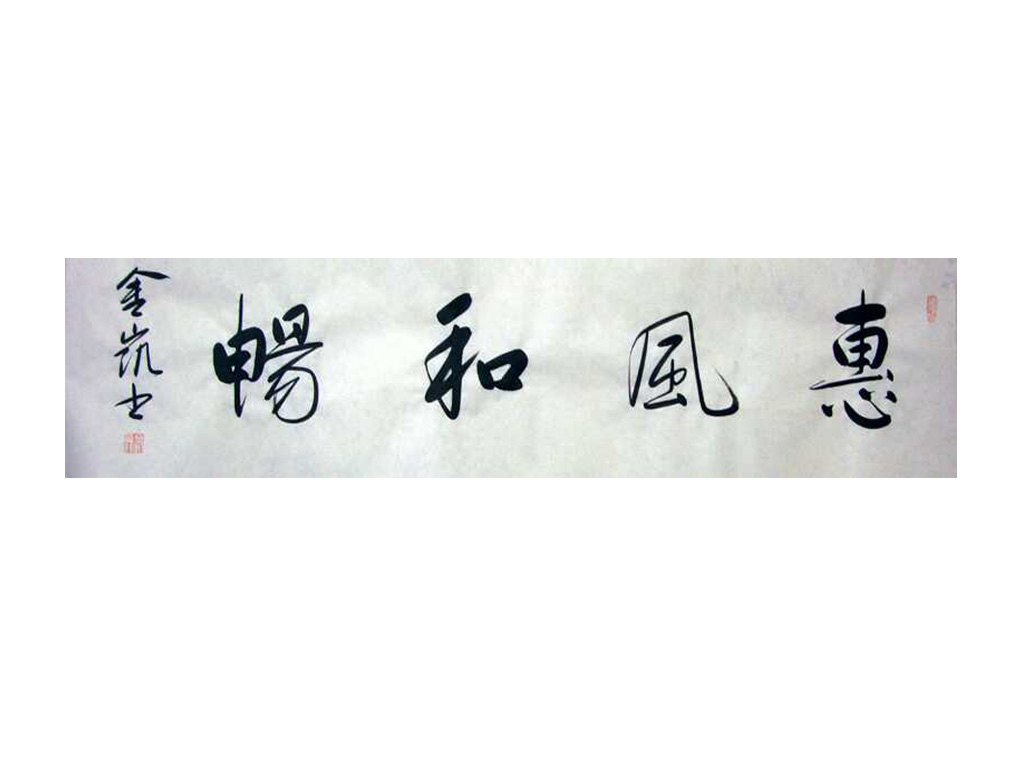 惠風和暢
金凱书